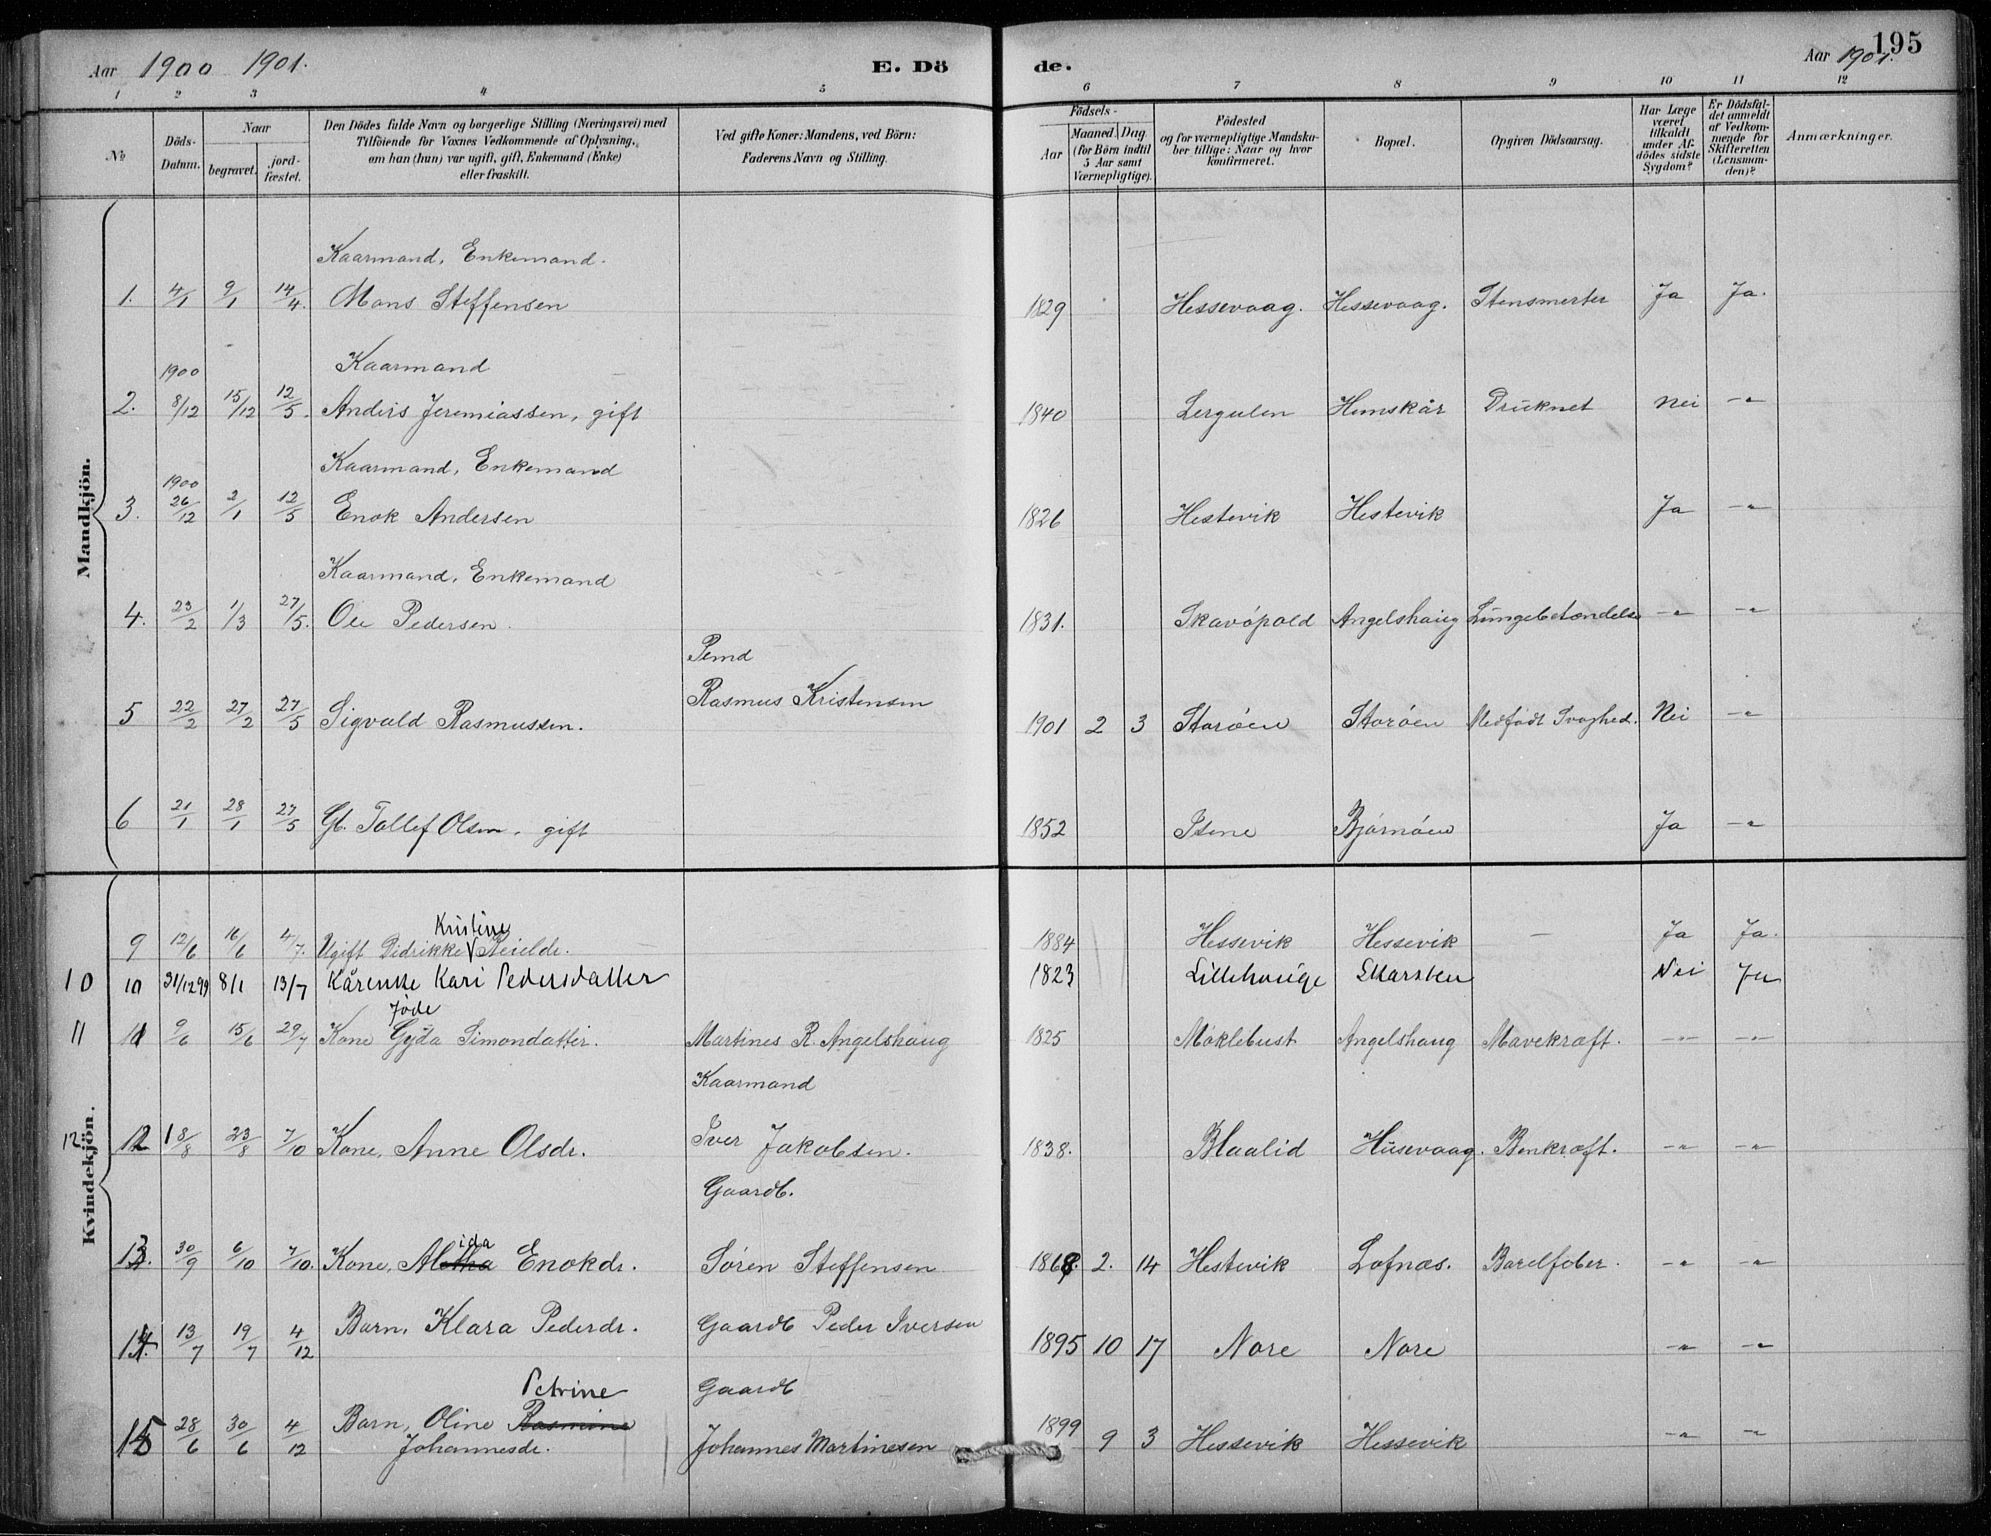 Aar 1900 1901. E. Dö de. Aar 1901. 195
1 2 3 4 5 6 7 8 9 10 11 12
No
Döds-Datum.
Naar
begravet.
jord-fæstet.
Den Dödes fulde Navn og borgerlige Stilling (Næringsvei) med
Tilföiende for Voxnes Vedkommende af Oplysning,
om han (hun) var ugift, gift, Enkemand (Enke)
eller fraskilt.
Ved gifte Koner: Mandens, ved Börn:
Faderens Navn og Stilling.
Födsels-
Aar
Maaned. Dag
(for Börn indtil
5 Aar samt
Værnepligtige).
Födested
og for værnepligtige Mandska-
ber tillige: Naar og hvor
konfirmeret.
Bopæl.
Opgiven Dödsaarsag.
Har Læge
været
tilkaldt
under Af-
dödes sidste
Sygdom?
Er Dödsfal-
det anmeldt
af Vedkom-
mende for
Skifteretten
(Lensman-
den)?
Anmærkninger.
Mandkjön.
Kaarmand, Enkemand.
1. 4/1 9/1 14/4. Mons Steffensen 1829 Hessevaag. Hessevaag. Stensmerter Ja Ja.
1900 Kaarmand
2. 8/12 15/12 12/5. Anders Jeremiassen, gift 1840 Lergulen Humskår Druknet Nei -"-
Kaarmand, Enkemand
1900
3. 26/12 2/1 12/5 Enok Andersen 1826 Hestevik Hestevik Ja -"-
Kaarmand, Enkemand
4. 23/2 1/3 27/5. Ole Pedersen. 1831. Skavøpold Angelshaug Lungebetændelse -"- -"-
Pemd
Rasmus Kristensen
5 22/2 27/2 27/5 Sigvald Rasmussen. 1901 2 3 Storøen Storøen Medfødt Svaghed. Nei -"-
6 21/1 28/1 27/5 Gb. Tollef Olsen, gift 1852 Stene Bjørnøen Ja -"-
Kvindekjön.
Kristine
9 12/6 16/6 4/7. Ugift Didrikke Reieldr. 1884 Hessevik Hessevik - Ja Ja.
10 10 31/12 99 8/1 13/7 Kårenke Kari Pedersdatter 1823 Lillehauge Marsten Nei Ja
Jøde
11 11 9/6 15/6 29/7 Kone Gÿda Simondatter. Martines R. Angelshaug 1825 Møklebust Angelshaug Mavekræft. -"- -"-
Kaarmand
12 12 18/8 23/8 7/10 Kone, Anne Olsdr. Iver Jakobsen. 1838. Blaalid Husevaag. Benkræft. -"- -"-
Gaardb.
ida
13. 30/9 6/10 7/10. Kone, Aletha Enokdr. Søren Steffensen 1868. 2. 14 Hestevik Lofnæs. Barelfeber. -"- -"-
14. 13/7 19/7 4/12 Barn, Klara Pederdr. Gaardb Peder Iversen 1895 10 17 Nore Nore -"- -"-
Petrine Gaardb
15 28/6 30/6 4/12 Barn, Oline Rasmine 1899 9 3 Hessevik Hessevik -"- -"-
Johannesdr. Johannes Martinesen